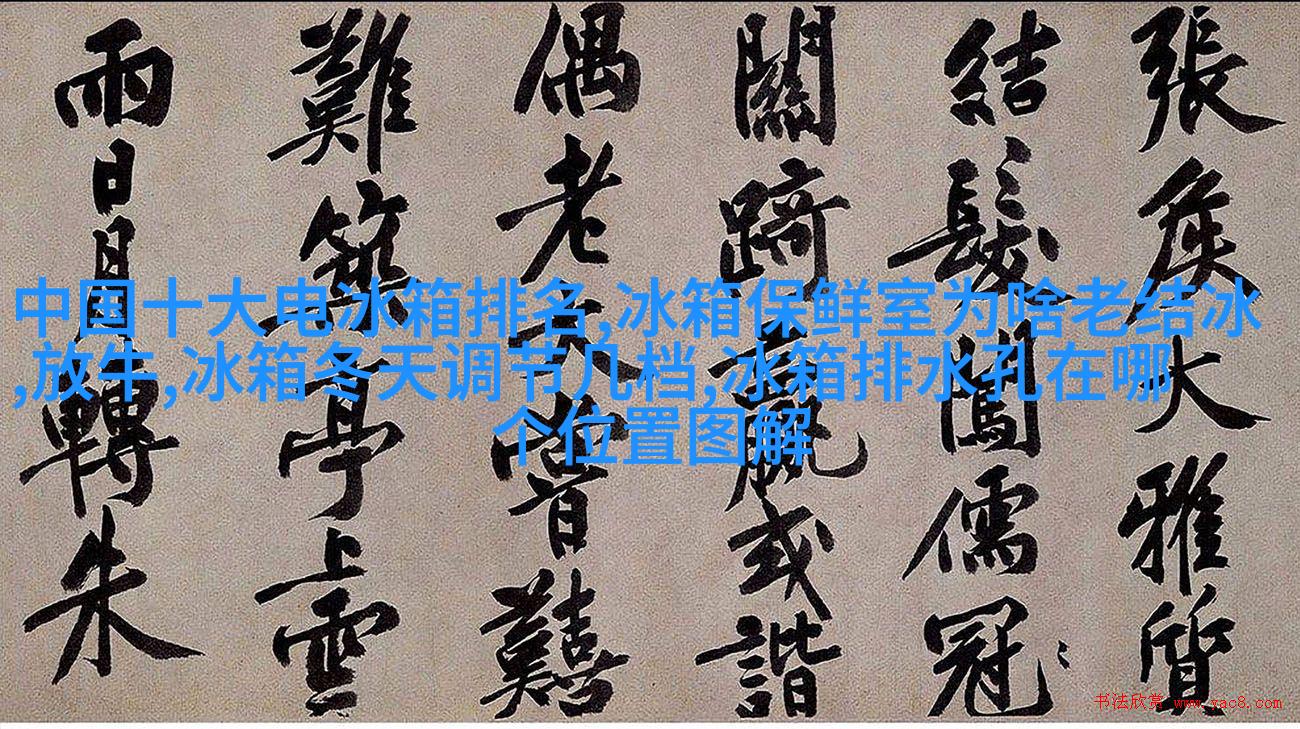 中国十大电冰箱排名,冰箱保鲜室为啥老结冰
,放牛,冰箱冬天调节几档,冰箱排水孔在哪
个位置图解
張侯大雅質
結髮闖儒冠
關踦或諧
偶老夫嘗囏
難築亭上雲
雨日月轉朱
书法欣赏 www.yac8.com